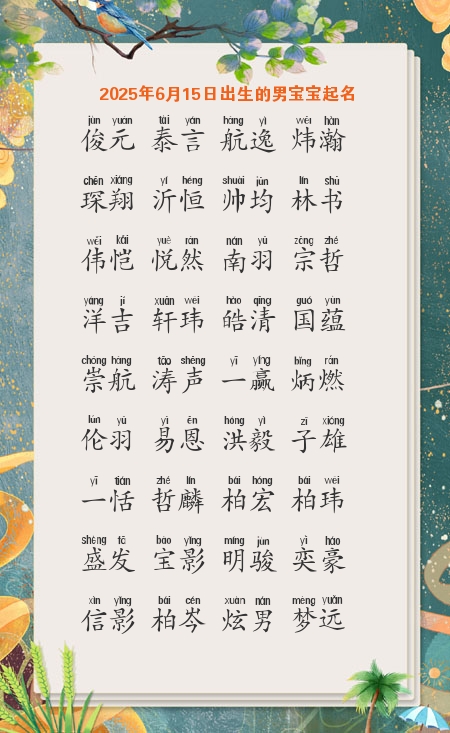 2025年6月15日出生的男宝宝起名
jùn yuán tài yán háng yì wěi hàn
俊元 泰言 航逸 炜瀚
chēn xiáng yí héng shuài jūn lín shū
琛翔 沂恒 帅均 林书
wěi kǎi yuè rán nán yǔ zōng zhé
伟恺 悦然 南羽 宗哲
yáng jí xuān wěi hào qīng guó yùn
洋吉 轩玮 皓清 国蕴
chóng háng tāo shēng yī yíng bǐng rán
崇航 涛声 一赢 炳燃
lún yǔ yì ēn hóng yì zǐ xióng
伦羽 易恩 洪毅 子雄
yī tián zhé lín bǎi hóng bǎi wěi
一恬 哲麟 柏宏 柏玮
shèng fā bǎo yǐng míng jùn yì háo
盛发 宝影 明骏 奕豪
xìn yǐng bǎi cén xuàn nán mèng yuǎn
信影 柏岑 炫男 梦远